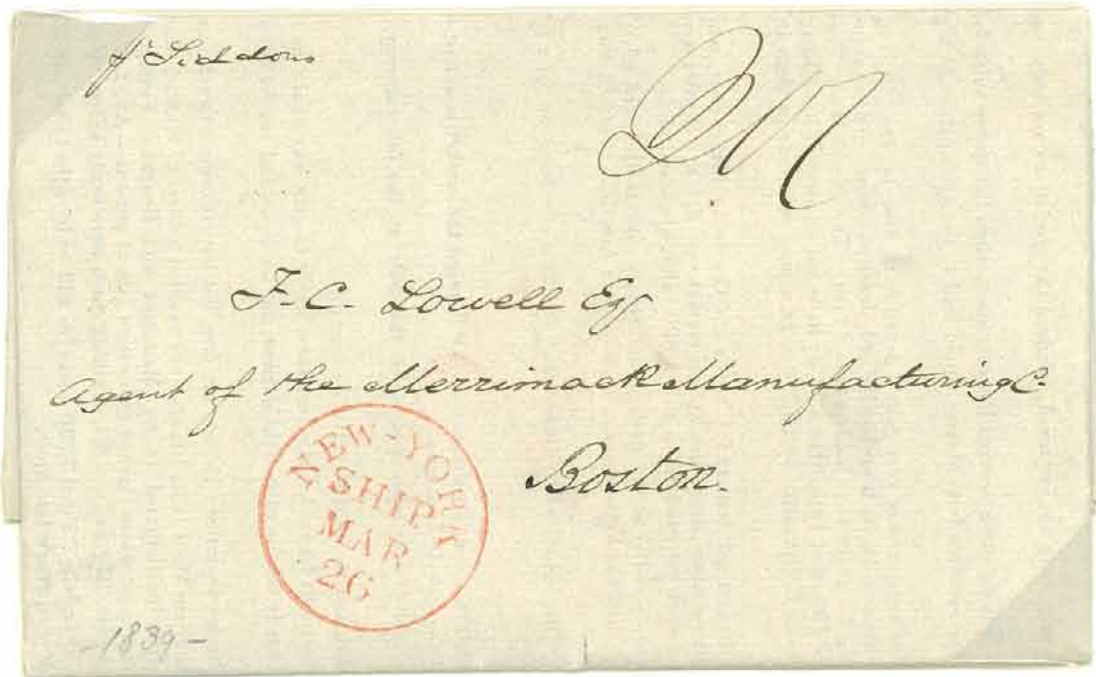 pr Siddons
F. C. Lowell Esq
Agent of the Merrimack Manufacturing Co.
Boston.
NEW-YORK
SHIP
MAR
26
1839-